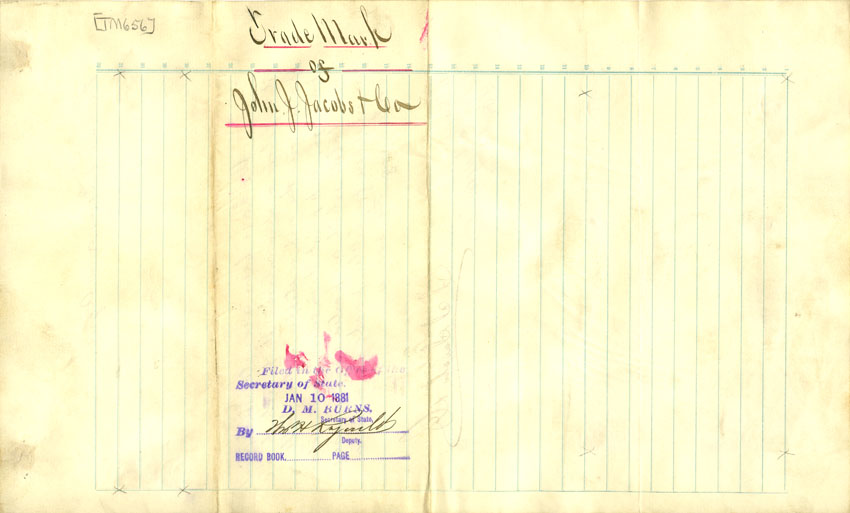 [TM656]
Trade Mark
of
John. J. Jacobs & Co
Filed in the Office of the
Secretary of State.
JAN 10 1881
D. M. BURNS.
Secretary of State.
By
Deputy.
RECORD BOOK PAGE